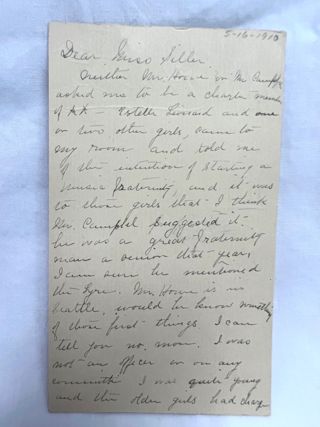 5-16-1910
Dear Miss Siller
Neither Mr. Howe or Mr. Campbel
asked me to be a charter member
of AX - Estelle Leonard and one
or two other girls, came to
my room and told me
of the intention of starting a
music fraternity, and it was
to those girls that I think
Mr. Campbel suggested it.
he was a great fraternity
man a senior that year,
I am sure he mentioned
the Lyre. Mr. Howe is in
Seattle, would he know something
of those first things. I can
tell you no more. I was
not an officer or on any
committee I was quite young
and the older girls had charge